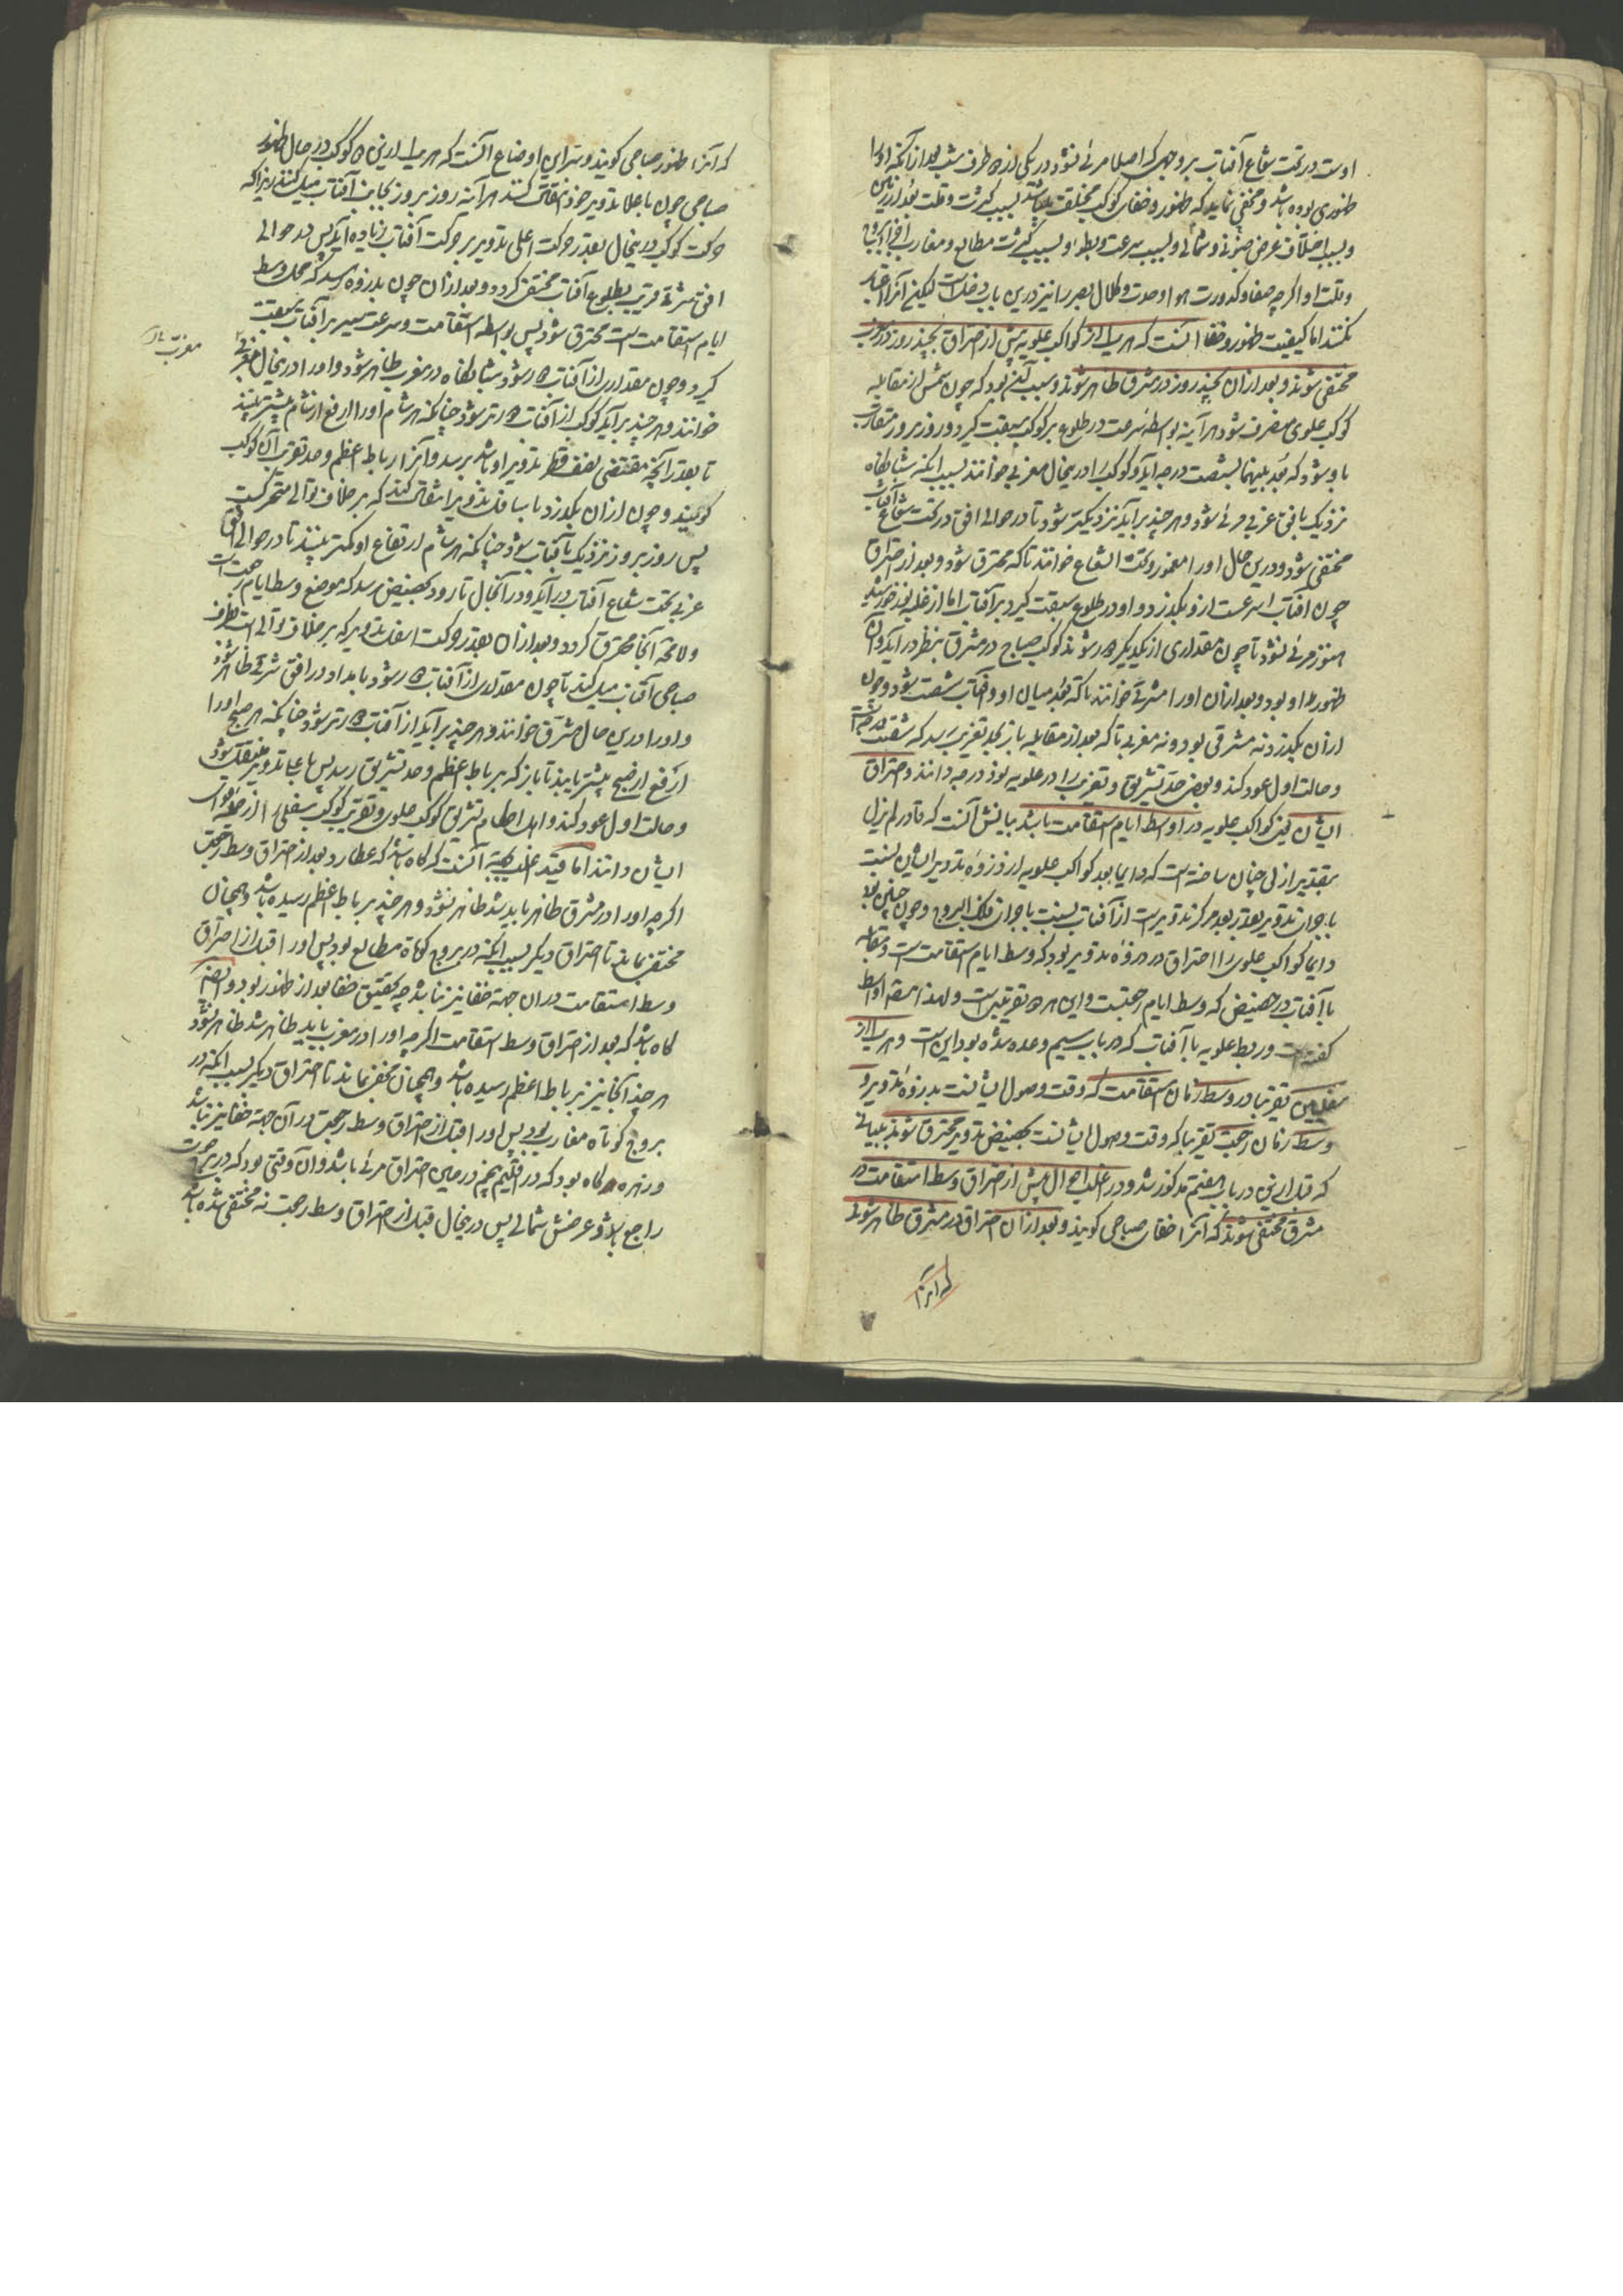 اوست در تحت شعاع آفتاب بر وجهی که اصلا مرئی نشود در یکی از دو طرف شب بعد از آنکه او را
ظهوری بوده باشد و مخفی نماند که ظهور و خفای کوکب مختلف میباشد بسبب کثرت و قلت بعد از زمین
و بسبب اختلاف عرض جنوبی و شمالی و بسبب سرعت و بطؤ او بسبب کثرت مطالع و مغارب
و قلت او اگرچه صفا و کدورت هوا و حدت و کلال بصر را نیز درین باب دخل است لیکن آنرا اعتبار
نکنند اما کیفیت ظهور و خفا آنست که هر یک از کواکب علویه پیش از احتراق بچند روز در مغرب
مختفی شوند و بعد از آن بچند روز در مشرق ظاهر شوند و سبب آن بود که چون شمس از مقابله
کوکب علوی منصرف شود هر آینه بواسطه سرعت در طلوع بر کوکب سبقت گیرد و روز بروز متقارب
با و شود که بعد بینهما بشصت درجه آید و کوکب را درینحال مغربی خوانند بسبب آنکه شبانگاه
نزدیک بافق غربی مرئی شود و هر چند برآید نزدیکتر شود تا در حوالی افق در تحت شعاع آفتاب
مختفی شود و درین حال او را مغمور و تحت الشعاع خوانند تا که محترق شود و بعد از احتراق
چون آفتاب اسرعست از و بگذرد و او در طلوع سبقت گیرد بر آفتاب اما از غلبه نور خورشید
هنوز مرئی نشود تا چون مقداری از یکدیگر دور شوند کوکب صباح در مشرق بنظر درآید و آن
ظهور او بود و بعد از آن او را مشرقی خوانند تا که بعد میان او و آفتاب شصت شود و چون
از آن بگذرد نه مشرقی بود و نه مغربی تا که بعد از مقابله باز بحد تغریب رسد که شصت درجه است
و حالت اول عود کند و بعضی حد تشریق و تغریب را در علویه نود درجه دانند و احتراق
ایشان یعنی کواکب علویه در اواسط ایام استقامت باشد بیانش آنست که قادر لم یزل
بتقدیر ازلی چنان ساخته است که دایما بعد کواکب علویه از ذروه تدویر ایشان بنسبت
با جوانب تدویر بقدر بعد مرکز تدویرست از آفتاب بنسبت با جوانب فلک البروج و چون چنین بود
دایما کواکب علوی را احتراق در ذروه تدویر بود که وسط ایام استقامت است و مقابله
با آفتاب در حضیض که وسط ایام رجعتست و این هر دو تقریبیست و لهذا مصنف اواسط
گفته است و ربط علویه با آفتاب که در باب سیم وعده شده بود این است و هر یک از
سفلیین تقریبا در وسط زمان استقامت که وقت وصول ایشانست بذروه تدویر و
وسط زمان رجعت تقریبا که وقت وصول ایشانست بحضیض تدویر محترق شوند ببیانی
که قبل ازین در باب هفتم مذکور شد و در اغلب احوال پیش از احتراق وسط استقامت در
مشرق مختفی شوند که آنرا خفای صباحی گویند و بعد از آن احتراق در مشرق ظاهر شوند
که آنرا
که آنرا ظهور صباحی گویند و سر این اوضاع آنست که هر یک ازین دو کوکب در حال ظهور
صباحی چون باعلا تدویر خود انتقال کنند هر آینه روز بروز بجانب آفتاب میل کنند زیرا که
حرکت کوکب درینحال بقدر حرکت اعلی تدویر بر حرکت آفتاب زیاده آید پس در حوالی
افق شرقی قریب بطلوع آفتاب مختفی گردد و بعد از آن چون بذروه رسد که محل وسط
ایام استقامت است محترق شود پس بواسطه استقامت و سرعت سیر بر آفتاب سبقت
گیرد و چون مقداری از آفتاب دور شود شبانگاه در مغرب ظاهر شود و او را درینحال مغربی
خوانند و هر چند برآید کوکب از آفتاب دورتر شود چنانکه هر شام او را ارفع از شام پیشتر بینند
تا بعد از آنچه مقتضی نصف قطر تدویر او باشد برسد و آنرا رباط اعظم و حد تغریب آن کوکب
گویند و چون از آن بگذرد باسافل تدویر انتقال کند که بر خلاف توالی متحرکست
پس روز بروز نزدیک بآفتاب شود چنانکه هر شام ارتفاع او کمتر بینند تا در حوالی افق
غربی تحت شعاع آفتاب درآید و در آنحال تا رود بحضیض رسد که موضع وسط ایام رجعت است
ولامحه آنجا محترق گردد و بعد از آن بقدر حرکت اسفل تدویر که بر خلاف توالی است بطرف
صباحی آفتاب میل کند تا چون مقداری از آفتاب دور شود بامداد در افق شرقی ظاهر شود
و او را درین حال مشرق خوانند و هر چند برآید از آفتاب دورتر شود چنانکه هر صبح او را
ارفع از صبح پیشتر یابند تا باز که برباط اعظم و حد تشریق رسد پس باعلا تدویر منتقل شود
و حالت اول عود کند و اهل احکام تشریق کوکب علوی و تغریب کوکب سفلی را از
ایشان دانند اما قید اغلب بجهة آنست که گاه باشد که عطارد بعد از احتراق وسط رجعت
اگرچه او را در مشرق ظاهر باید شد ظاهر نشود و هر چند برباط اعظم رسیده باشد و همچنان
مختفی بماند تا احتراق دیگر بسبب آنکه در بروج کوتاه مطالع بود پس او را قبل از احتراق
وسط استقامت در آن جهة خفا نیز نباشد چه بتحقیق خفا بعد از ظهور بود و ایضا
گاه باشد که بعد از احتراق وسط استقامت اگرچه او را در مغرب باید ظاهر شد ظاهر نشود
هر چند آنجا نیز برباط اعظم رسیده باشد و همچنان مخفی بماند تا احتراق دیگر بسبب آنکه در
بروج کوتاه مغارب بود پس او را قبل از احتراق وسط رجعت در آن جهة خفا نیز نباشد
و زهره گاه بود که در اقلیم پنجم در عین احتراق مرئی باشد و آن وقتی بود که در برج حوت
راجع باشد و عرضش شمالی پس درینحال قبل از احتراق وسط رجعت نه مختفی شده باشد